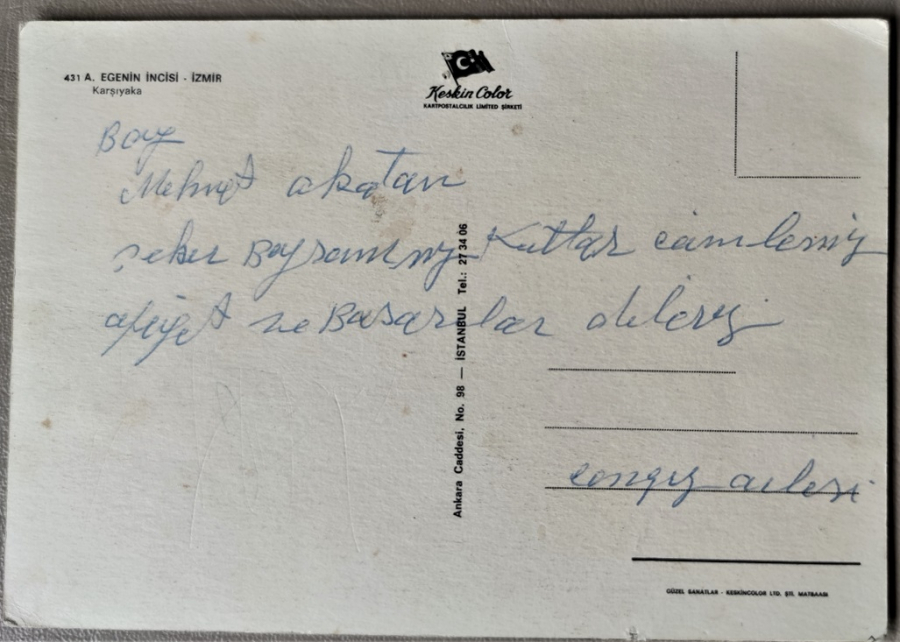 431 A. EGENİN İNCİSİ - İZMİR
Karşıyaka
Keskin Color
KARTPOSTALCILIK LIMITED ŞİRKETİ
Bay
Mehmet akatan
şeker Bayramınızı Kutlar
afiyet ve Başarılar dileriz
ailesi
Ankara Caddesi, No. 98 — İSTANBUL Tel.: 27 34 06
GÜZEL SANATLAR - KESKİNCOLOR LTD. ŞTİ. MATBAASI